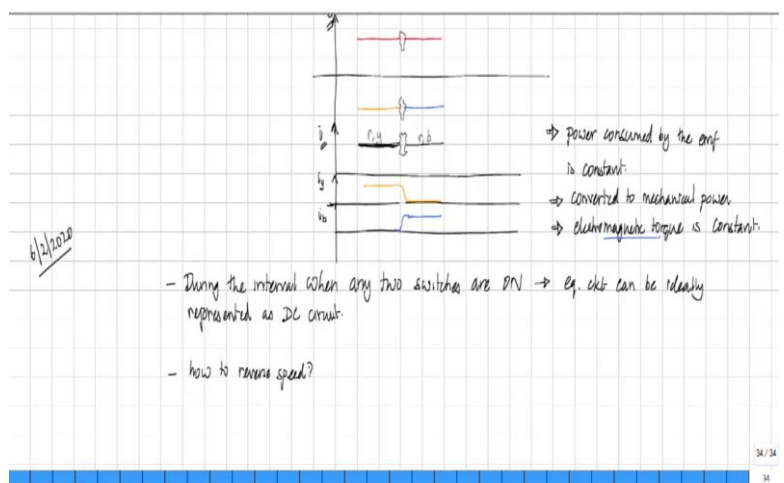 r,y
r,b
iy
ib
⇒ power consumed by the emf
is constant.
⇒ converted to mechanical power
⇒ electromagnetic torque is constant.
6/2/2020
- During the interval when any two switches are ON → eq. ckt can be ideally
represented as DC circuit.
- how to reverse speed?
34 / 34
34